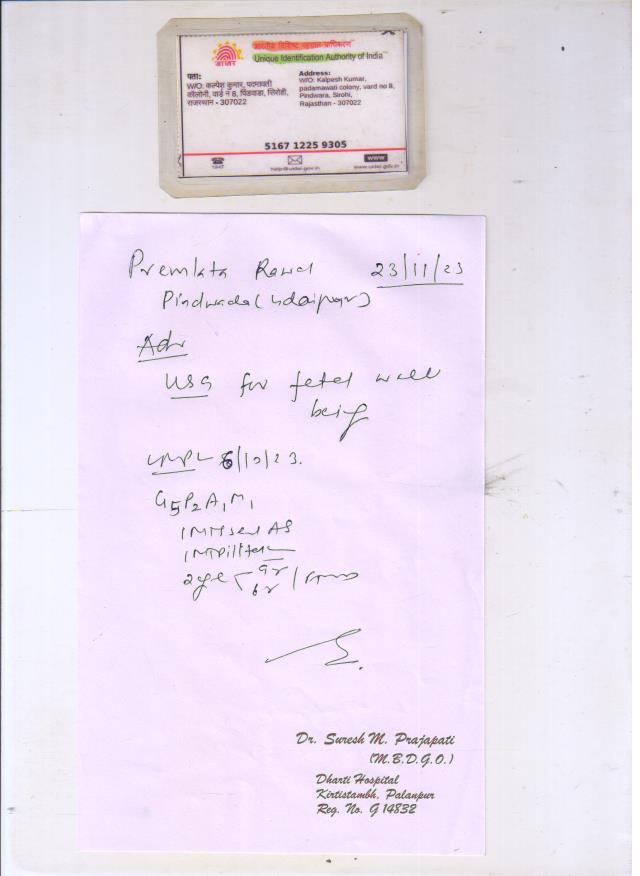 भारतीय विशिष्ट पहचान प्राधिकरण
Unique Identification Authority of India
आधार
पता:
W/O: कल्पेश कुमार, पदमावती
कॉलोनी, वार्ड न 8, पिंडवाडा, सिरोही,
राजस्थान - 307022
Address:
W/O: Kalpesh Kumar,
padamawati colony, vard no 8,
Pindwara, Sirohi,
Rajasthan - 307022
5167 1225 9305
1947
help@uidai.gov.in
www
www.uidai.gov.in
Premlata Rawal 23/11/23
Pindwada (Udaipur)
Adv
USG for fetal well
being
LMP - 6/10/23.
G5P2A1M1
Dr. Suresh M. Prajapati
(M.B.D.G.O.)
Dharti Hospital
Kirtistambh, Palanpur
Reg. No. G 14832